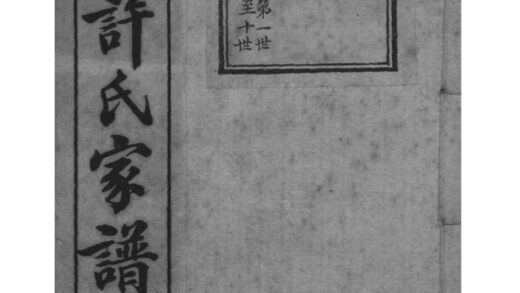 許氏家譜
第一世
至十世